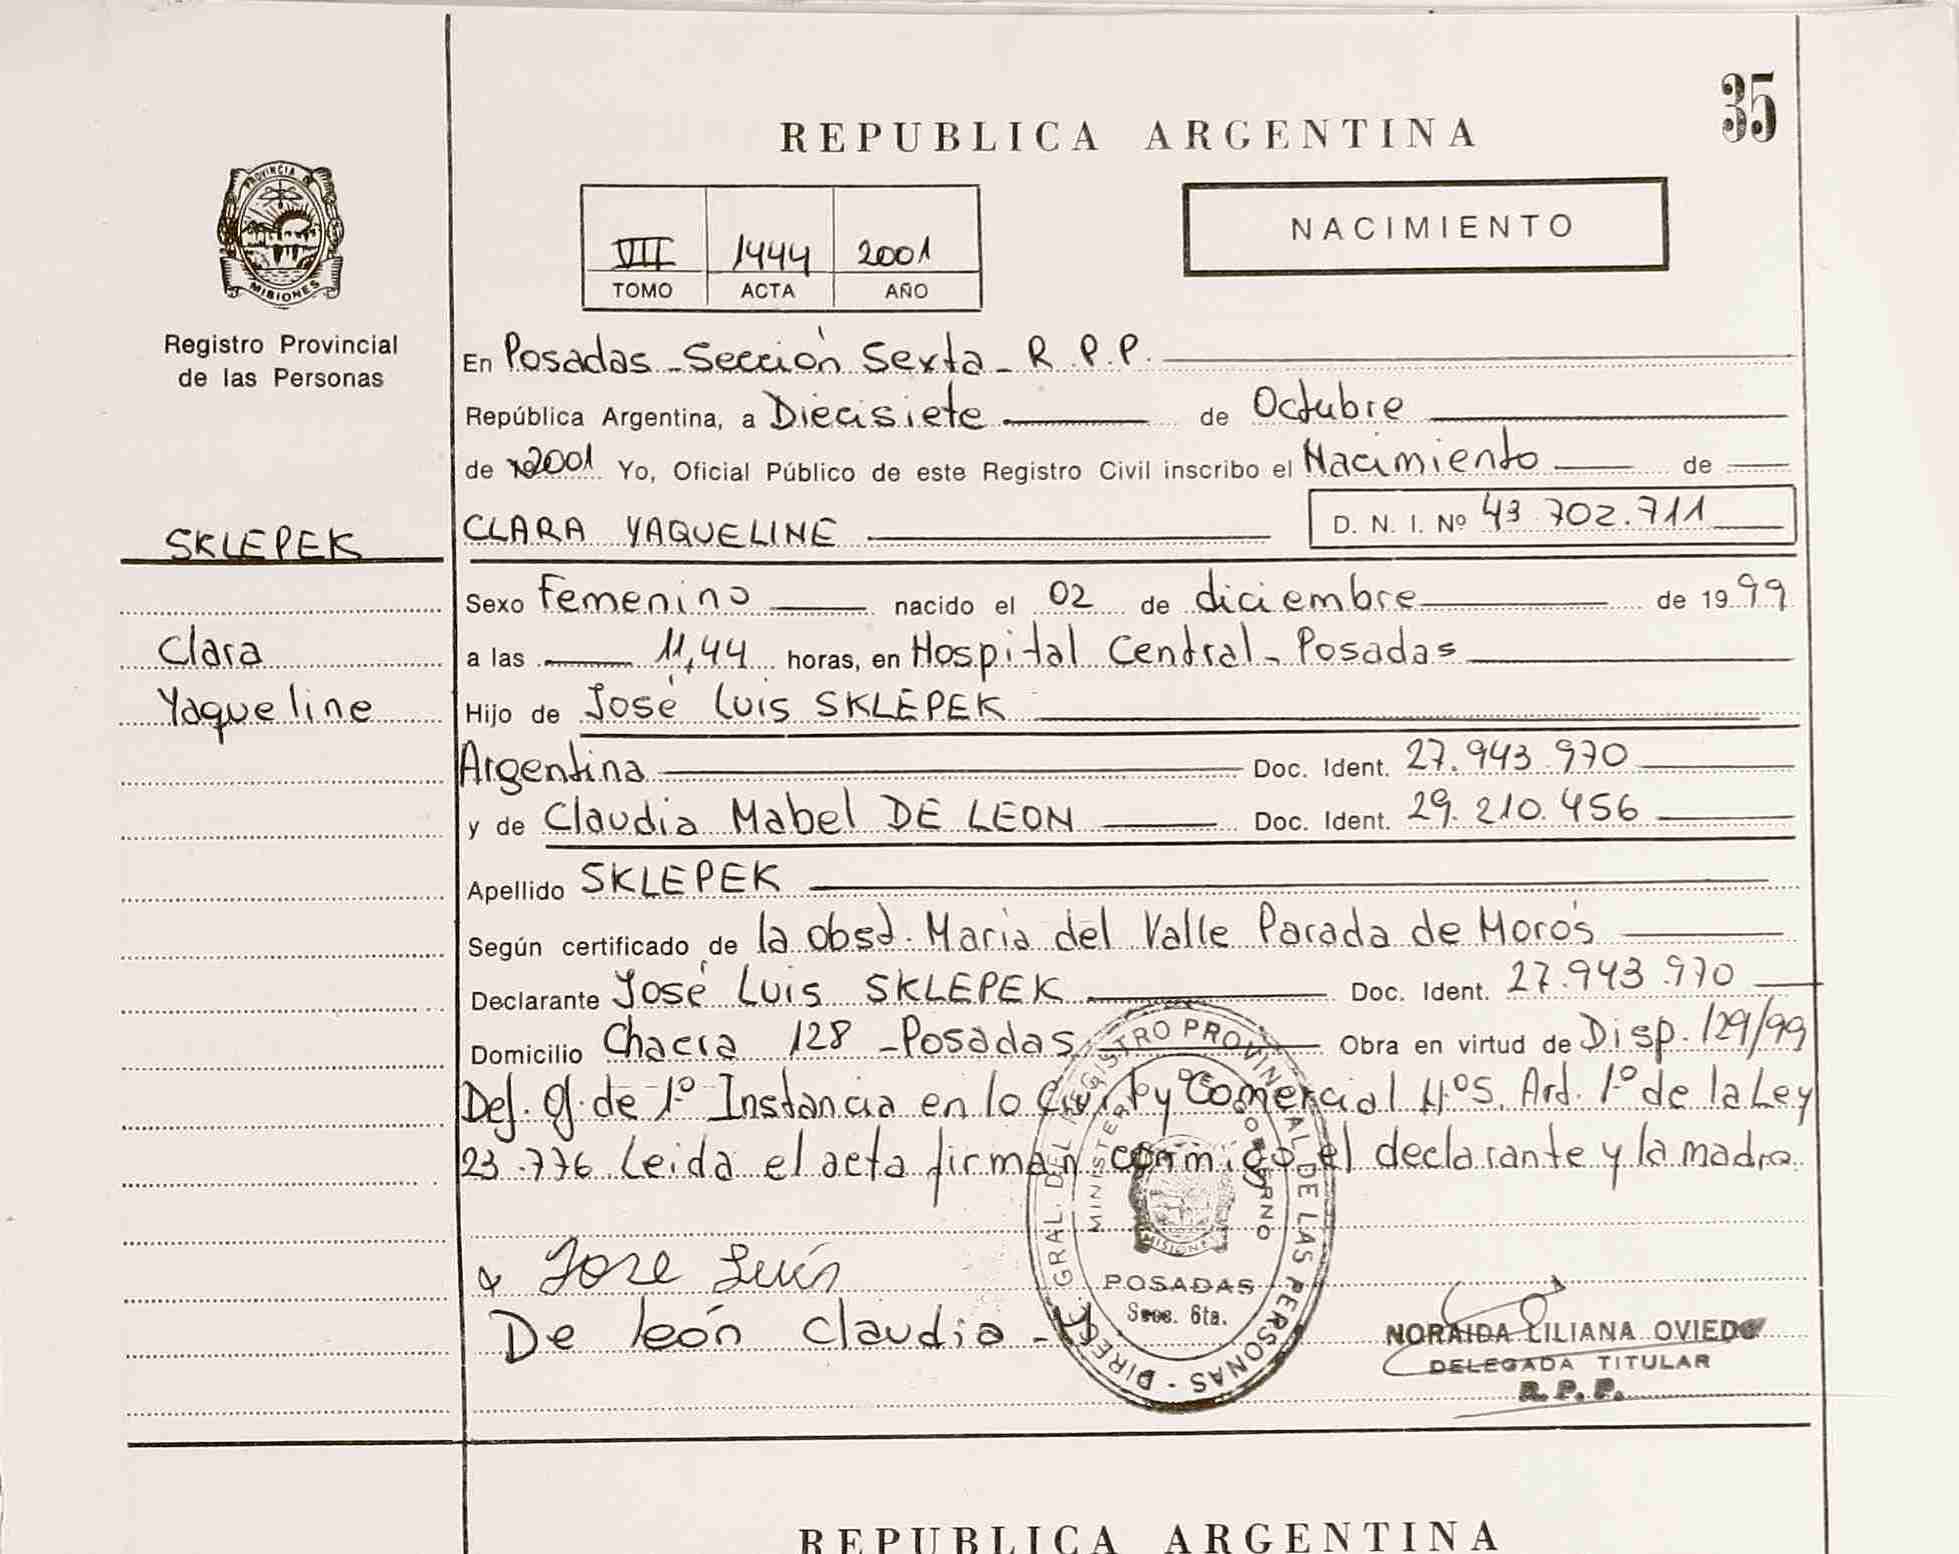 35
REPUBLICA ARGENTINA
PROVINCIA DE
MISIONES
Registro Provincial
de las Personas
NACIMIENTO
VII 1444 2001
TOMO ACTA AÑO
En Posadas - Sección Sexta - R.P.P.
República Argentina, a Diecisiete de Octubre
de 2001 Yo, Oficial Público de este Registro Civil inscribo el Nacimiento de
SKLEPEK
Clara
Yaqueline
CLARA YAQUELINE D. N. I. Nº 43.702.711
Sexo Femenino nacido el 02 de diciembre de 1999
a las 11,44 horas, en Hospital Central - Posadas
Hijo de José Luis SKLEPEK
Argentina Doc. Ident. 27.943.970
y de Claudia Mabel DE LEON Doc. Ident. 29.210.456
Apellido SKLEPEK
Según certificado de la obst. Maria del Valle Parada de Morós
Declarante José Luis SKLEPEK Doc. Ident. 27.943.970
Domicilio Chacra 128 - Posadas Obra en virtud de Disp. 129/99
Def. of. de 1º Instancia en lo Civil y Comercial Nº5. Art. 1º de la Ley
23.776. Leida el acta firman conmigo el declarante y la madre.
Jose Luis
De león Claudia - M
DIREC. GRAL. DEL REGISTRO PROVINCIAL DE LAS PERSONAS
MINISTERIO DE GOBIERNO
MISIONES
POSADAS
Secc. 6ta.
NORAIDA LILIANA OVIEDO
DELEGADA TITULAR
R. P. P.
REPUBLICA ARGENTINA